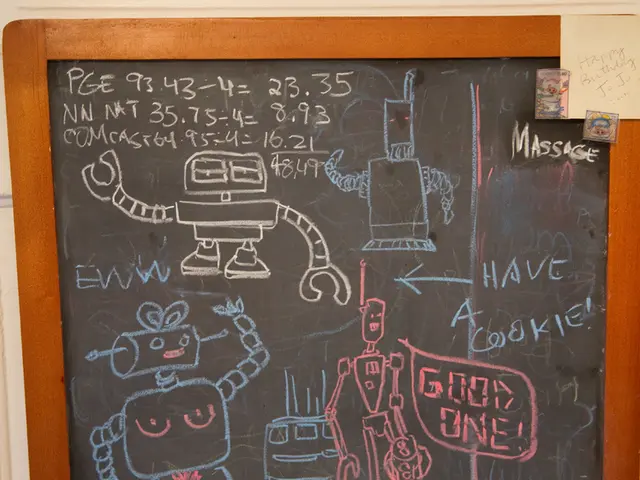 PGE 93.43÷4= 23.35
NN NAT 35.75÷4= 8.93
COMCAST 64.95÷4= 16.21
48.49
Happy
Birthday
T.J.
MASSAGE
EWW
HAVE
A
COOKIE!
GOOD
ONE!